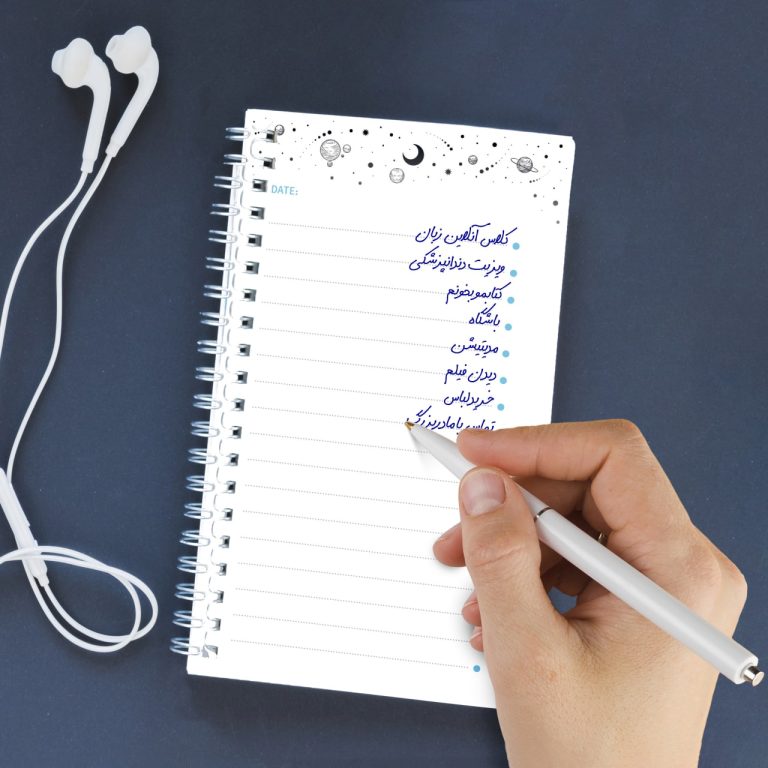 DATE:
کلاس آنلاین زبان
ویزیت دندانپزشکی
کتابمو بخونم
باشگاه
مدیتیشن
دیدن فیلم
خرید لباس
تماس با مادربزرگ